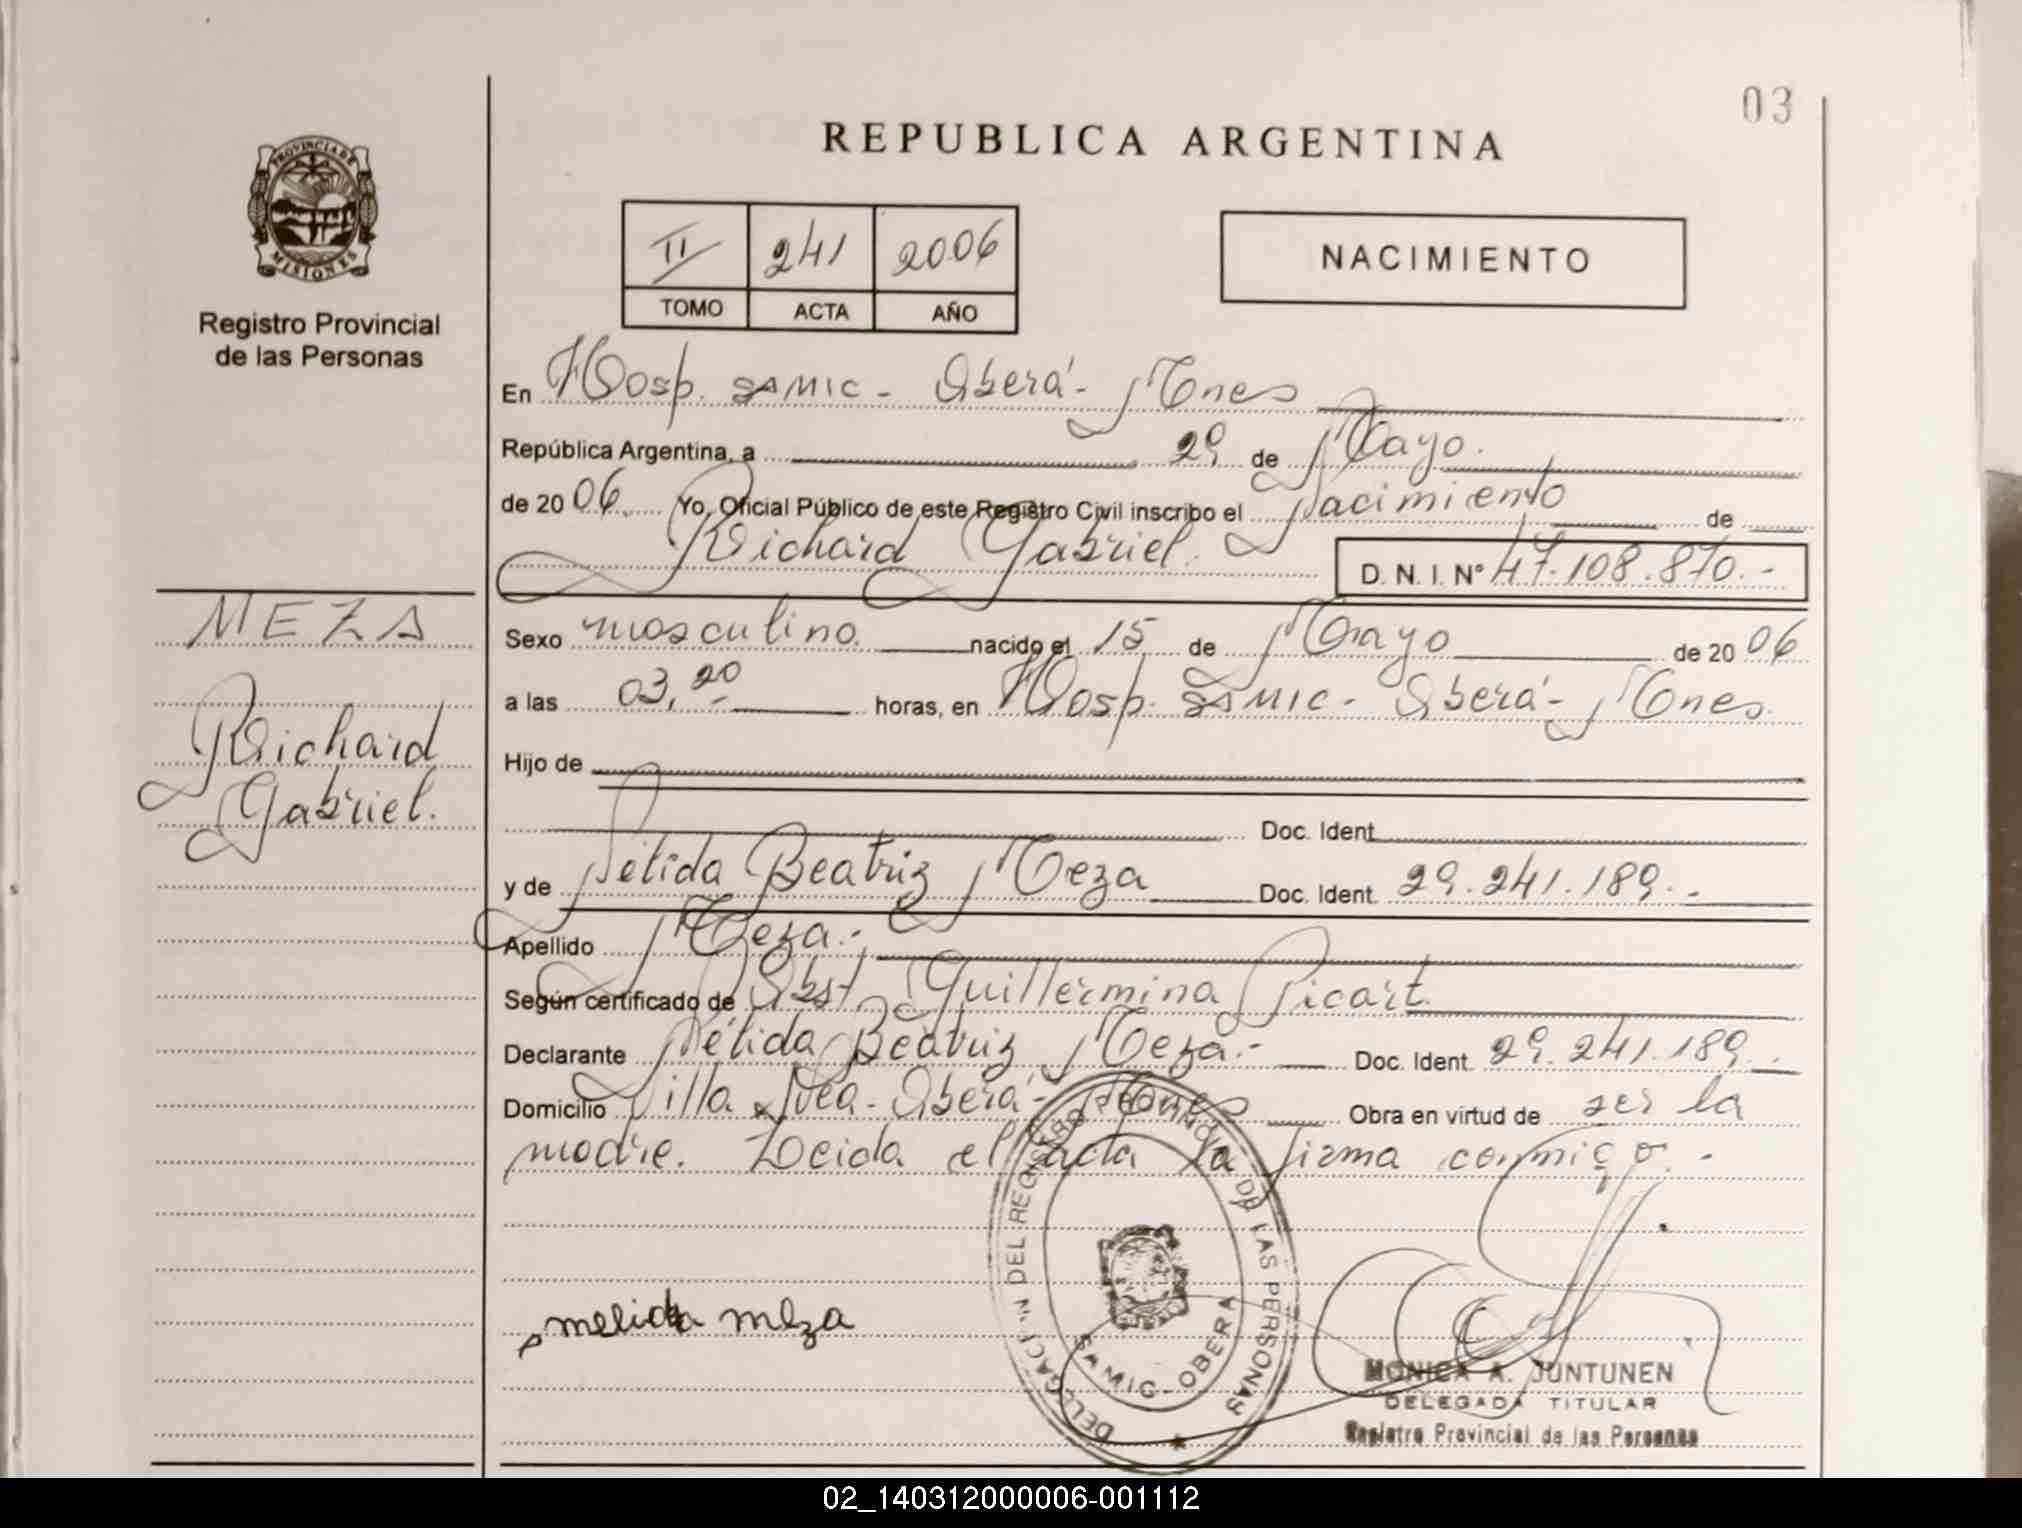 03
REPUBLICA ARGENTINA
PROVINCIA DE
MISIONES
Registro Provincial
de las Personas
II 241 2006
TOMO ACTA AÑO
NACIMIENTO
En Hosp. SAMIC - Oberá - Mnes
República Argentina, a 29 de Mayo.
de 20 06. Yo, Oficial Público de este Registro Civil inscribo el Nacimiento de
Richard Gabriel. D. N. I. Nº 47.108.870.-
MEZA
Richard
Gabriel.
Sexo masculino nacido el 15 de Mayo de 20 06
a las 03,20 horas, en Hosp. SAMIC - Oberá - Mnes.
Hijo de
Doc. Ident.
y de Nélida Beatriz Meza Doc. Ident. 29.241.189.-
Apellido Meza.-
Según certificado de Obst Guillermina Picart.
Declarante Nélida Beatriz Meza.- Doc. Ident. 29.241.189.-
Domicilio Villa Nva - Oberá - Mnes Obra en virtud de ser la
madre. Leida el acta la firma conmigo.-
melida meza
DELEGACI'N DEL REGISTRO PROVINCIAL DE LAS PERSONAS
SAMIC - OBERA
MONICA A. JUNTUNEN
DELEGADA TITULAR
Registro Provincial de las Personas
02_140312000006-001112